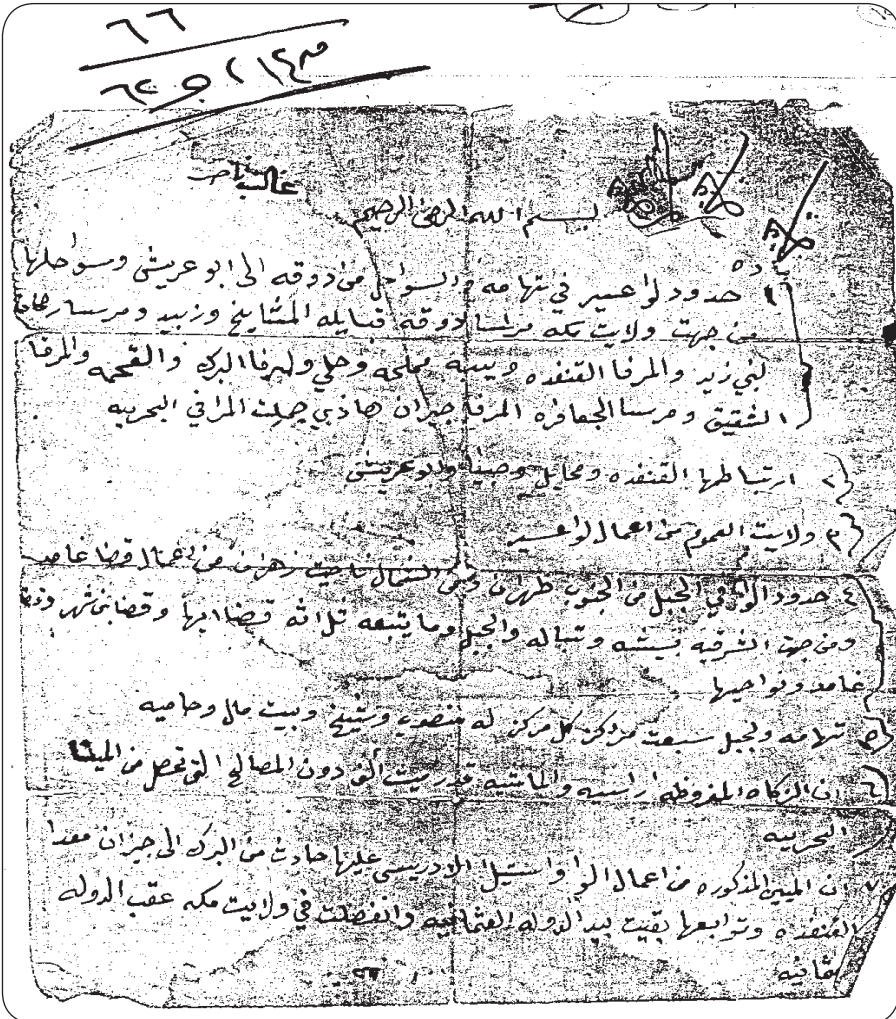 ٦٦
بسم الله الرحمن الرحيم
١ حدود لواعسير في تهامه والسواحل من دوقه الى ابو عريش وسواحلها
من جهت ولايت مكه مرسا دوقه قبايله المشايخ وزبيد ومرسا
لبني زيد والمرفا القنفده وحلي والمرفا البرك والقحمه والمرفا
الشقيق ومرسا الجعافره المرفا جيزان هاذي جملت المرافي البحريه
٢ ارتباطها القنفده ومحايل وصبيا وابو عريش
٣ ولايت العموم من اعمال لواعسير
٤ حدود الوا في الجبل من الجنوب ظهران ومن الشمال ناحيت زهران من اعمال قضا غامد
ومن جهت الشرقيه بيشه وتباله والجبل وما يتبعه ثلاثه قضا ابها وقضا بني شهر وقضا
غامد ونواحيها
٥ تهامه ولجبل سبعت مراكز كل مركز له منصوب وشيخ وبيت مال وحاميه
٦ ان الزكاه المذوظه اراسيه والماشيه قدر ميت ألف دون المصالح التي تحصل من المينا
البحريه
٧ ان الميين المذكوره من اعمال الوا واستيلا الادريسي عليها حادث من البرك الى جيزان معدا
القنفده وتوابعها بقيت بيد الدوله العثمانيه وانفصلت في ولايت مكه عقب الدوله